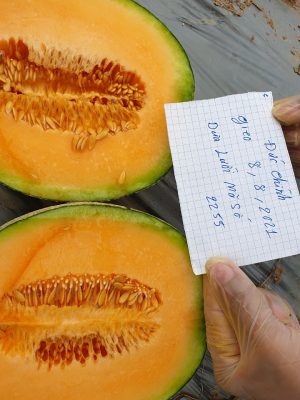 Đức Chính
gieo 8, 8, 2021
Dưa Lưới Mã Số
2255